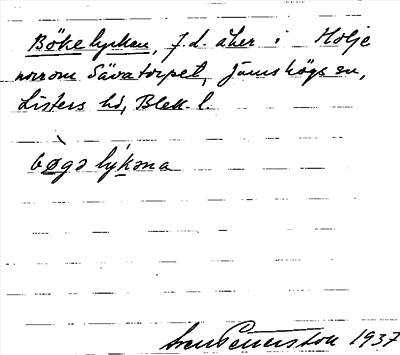 Bökelyckan, f.d. åker i Holje
norr om Sävatorpet, Jämshögs sn,
Listers hd, Blek. l.
bøgə lykəna
1937